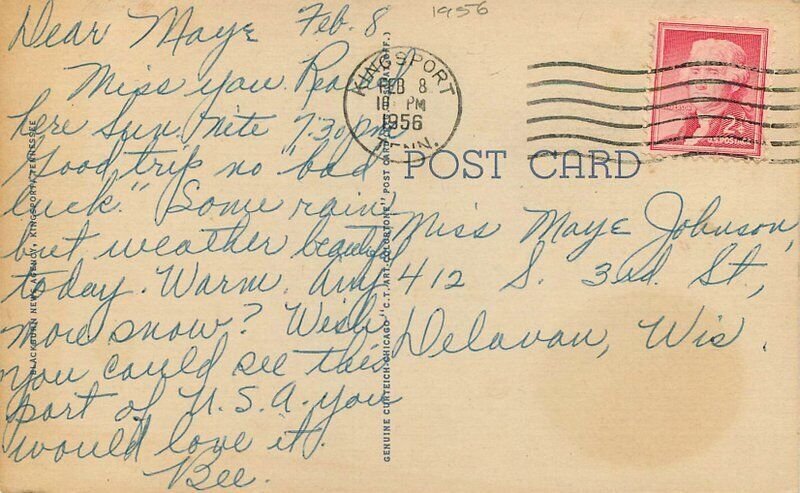 1956
Dear Maye Feb. 8
Miss you. Reached
here Sun. Nite 7:30 pm
Good trip no "bad
luck." Some rain
but weather beautiful
today. Warm. Any
more snow? Wish
you could see this
part of U.S.A. you
would love it.
Bee.
KINGSPORT
FEB 8
PM
1956
TENN.
2¢
U.S. POSTAGE
POST CARD
Miss Maye Johnson,
412 S. 3rd St.,
Delavan, Wis.
BLACKBURN NEWS AGENCY, KINGSPORT, TENNESSEE
GENUINE CURTEICH-CHICAGO "C.T. ART-COLORTONE" POST CARD (REG. U.S. PAT. OFF.)